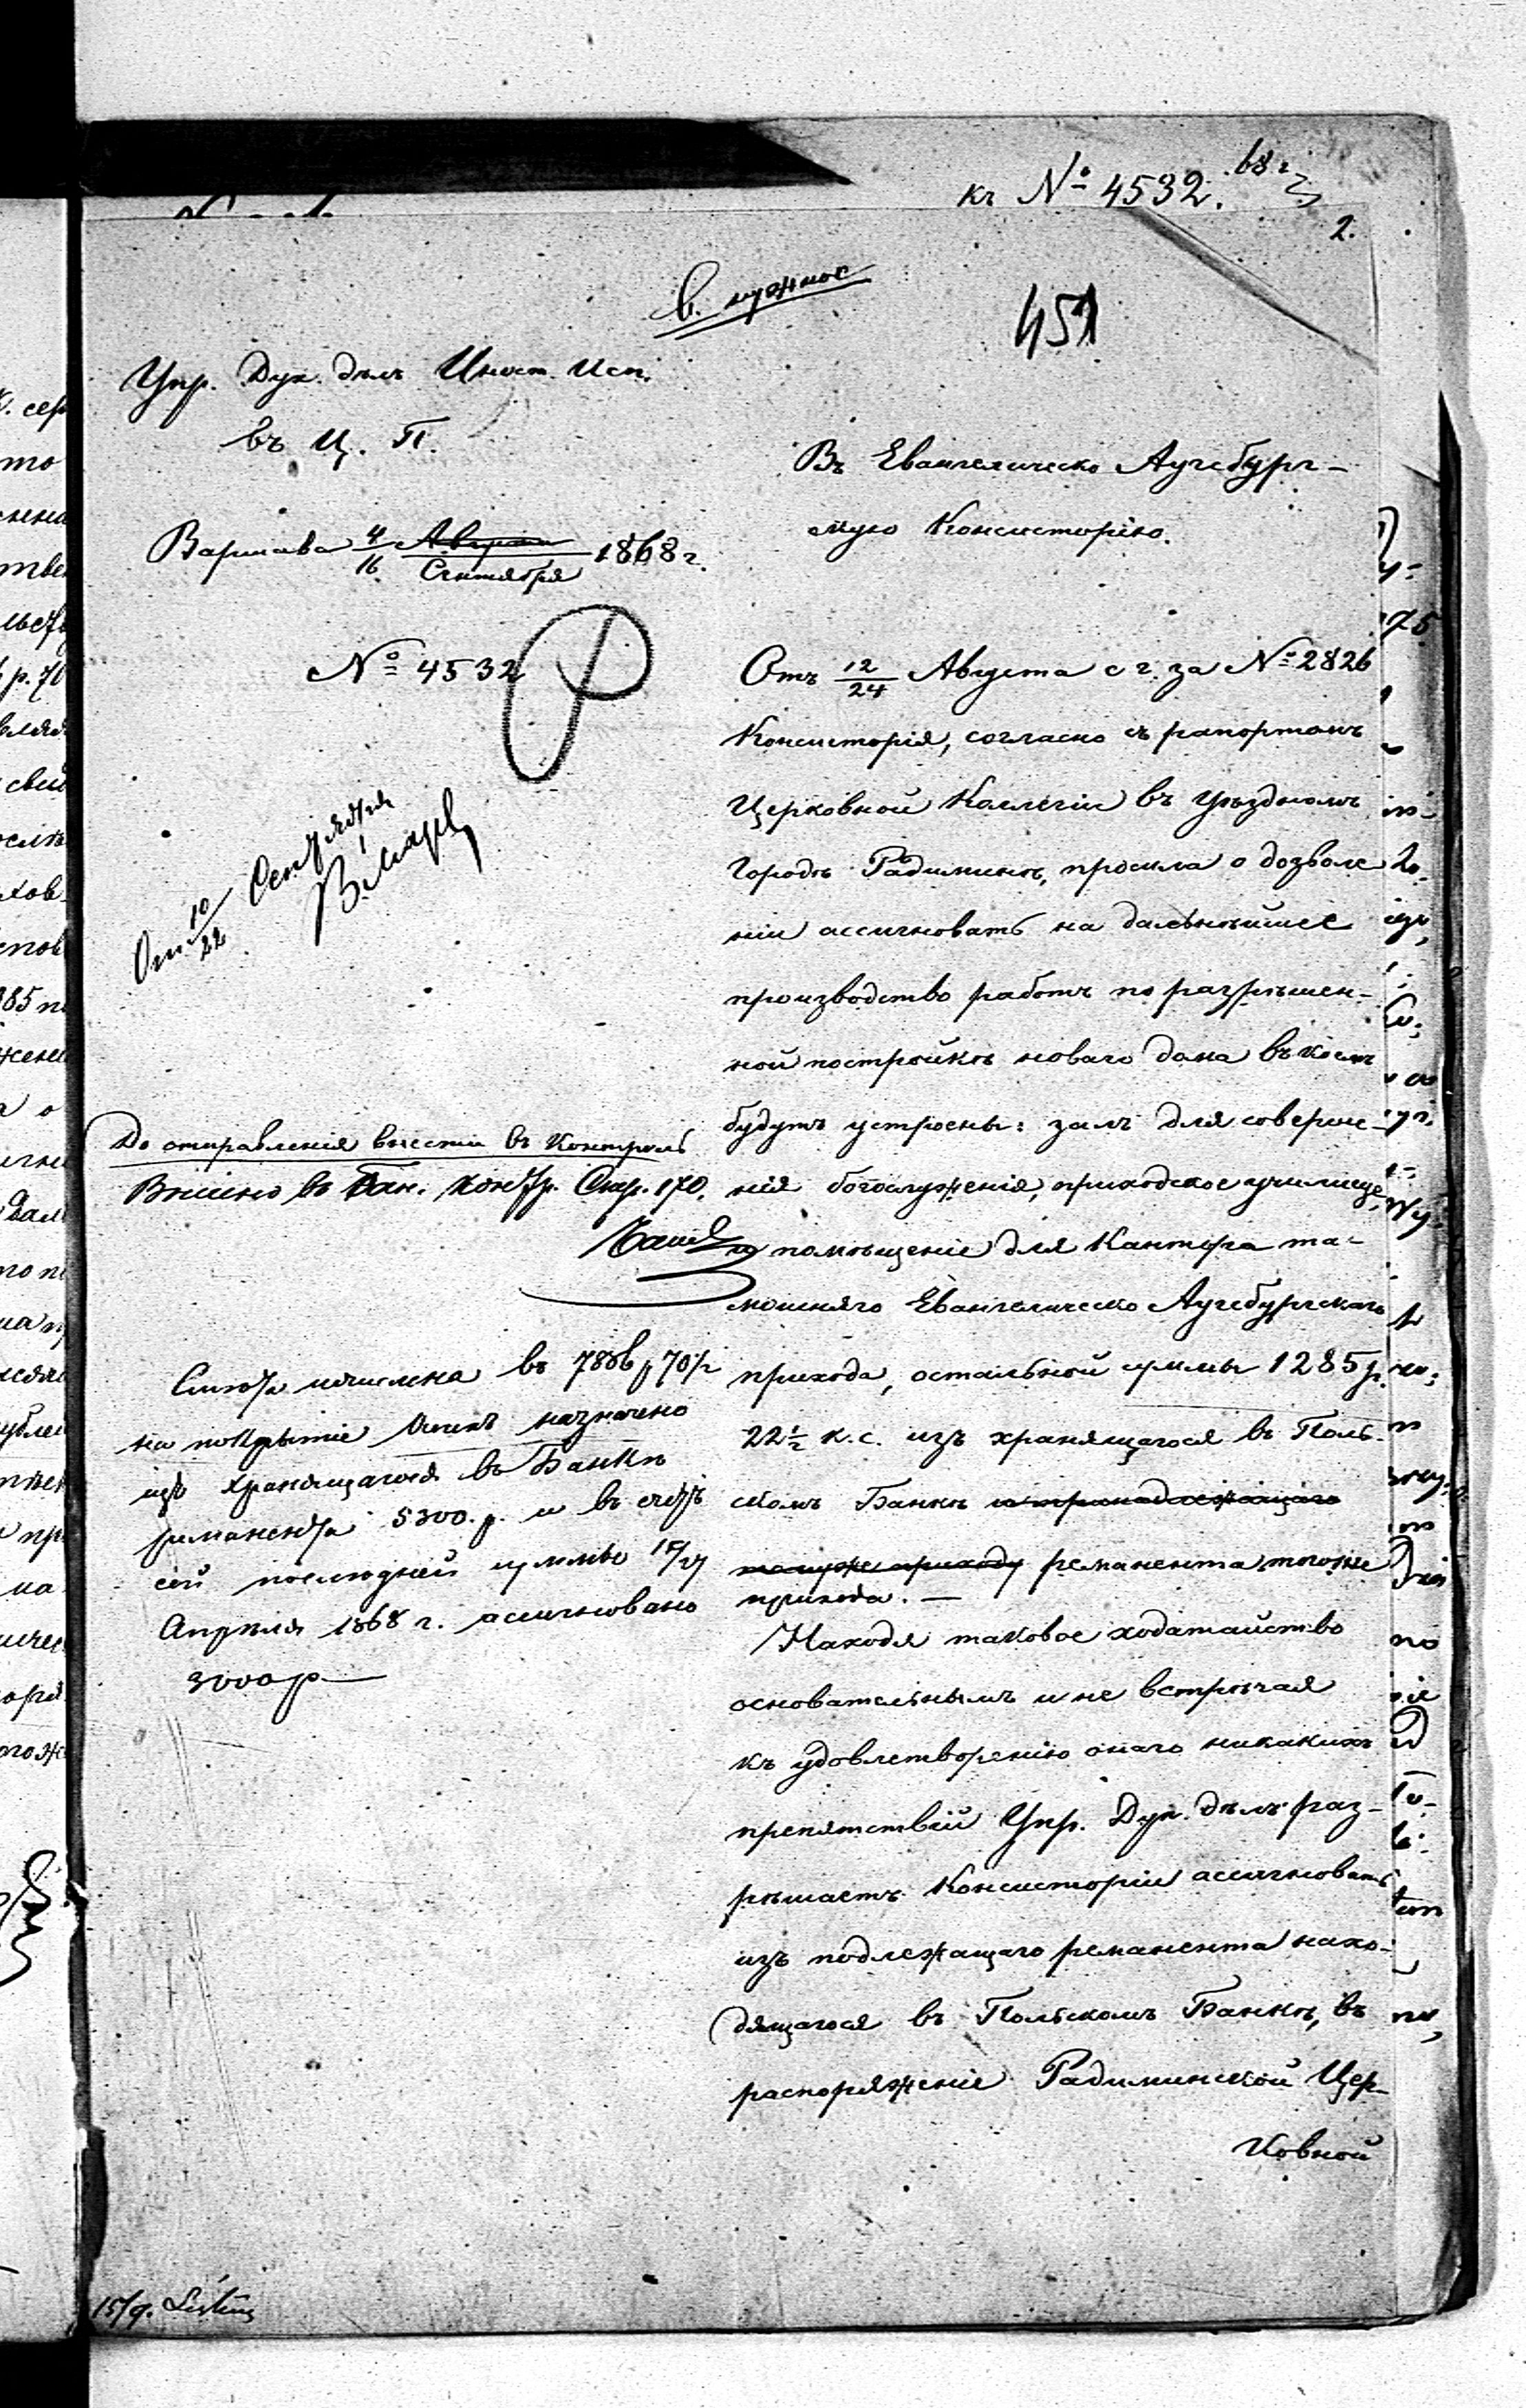 къ № 4532. 68 г.
2.
в. нужное
451
Упр. Дух. дѣлъ Иност. Исп.
въ Ц. П.
Варшава 4/16 Августа Сентября 1868 г.
№ 4532
Отп. 10/22 Сентября
До отправленія внести въ Контроль
Внесено въ Бан. контр. Стр. 170.
Смѣта исчислена въ 7866 р 70 1/2
на покрытіе оныхъ назначено
изъ хранящагося въ Банкѣ
реманента 5300 р. и въ счетъ
сей послѣдней суммы 15/27
Апрѣля 1868 г. ассигновано
3000 р
Въ Евангелическо Аугсбург-
скую Консисторію.
Отъ 12/24 Августа с г. за № 2826
Консисторія, согласно съ рапортомъ
Церковной Коллегіи въ уѣздномъ
городѣ Радиминѣ, просила о дозволе
ніи ассигновать на дальнѣйшее
производство работъ по разрѣшен-
ной постройкѣ новаго дома въ коемъ
будутъ устроены: залъ для соверше-
нія богослуженія, приходское училище,
и помѣщеніе для Кантора та-
мошняго Евангелическо Аугсбургскаго
прихода, остальной суммы 1285 р.
22 1/2 к. с. изъ хранящагося въ Поль-
скомъ Банкѣ и принадлежащаго
томуже приходу реманента тогоже
прихода. —
Находя таковое ходатайство
основательнымъ и не встрѣчая
къ удовлетворенію онаго никакихъ
препятствій Упр. Дух. дѣлъ раз-
рѣшаетъ Консисторіи ассигновать
изъ подлежащаго реманента нахо-
дящагося въ Польскомъ Банкѣ, въ
распоряженіе Радиминской Цер-
ковной
15/9.